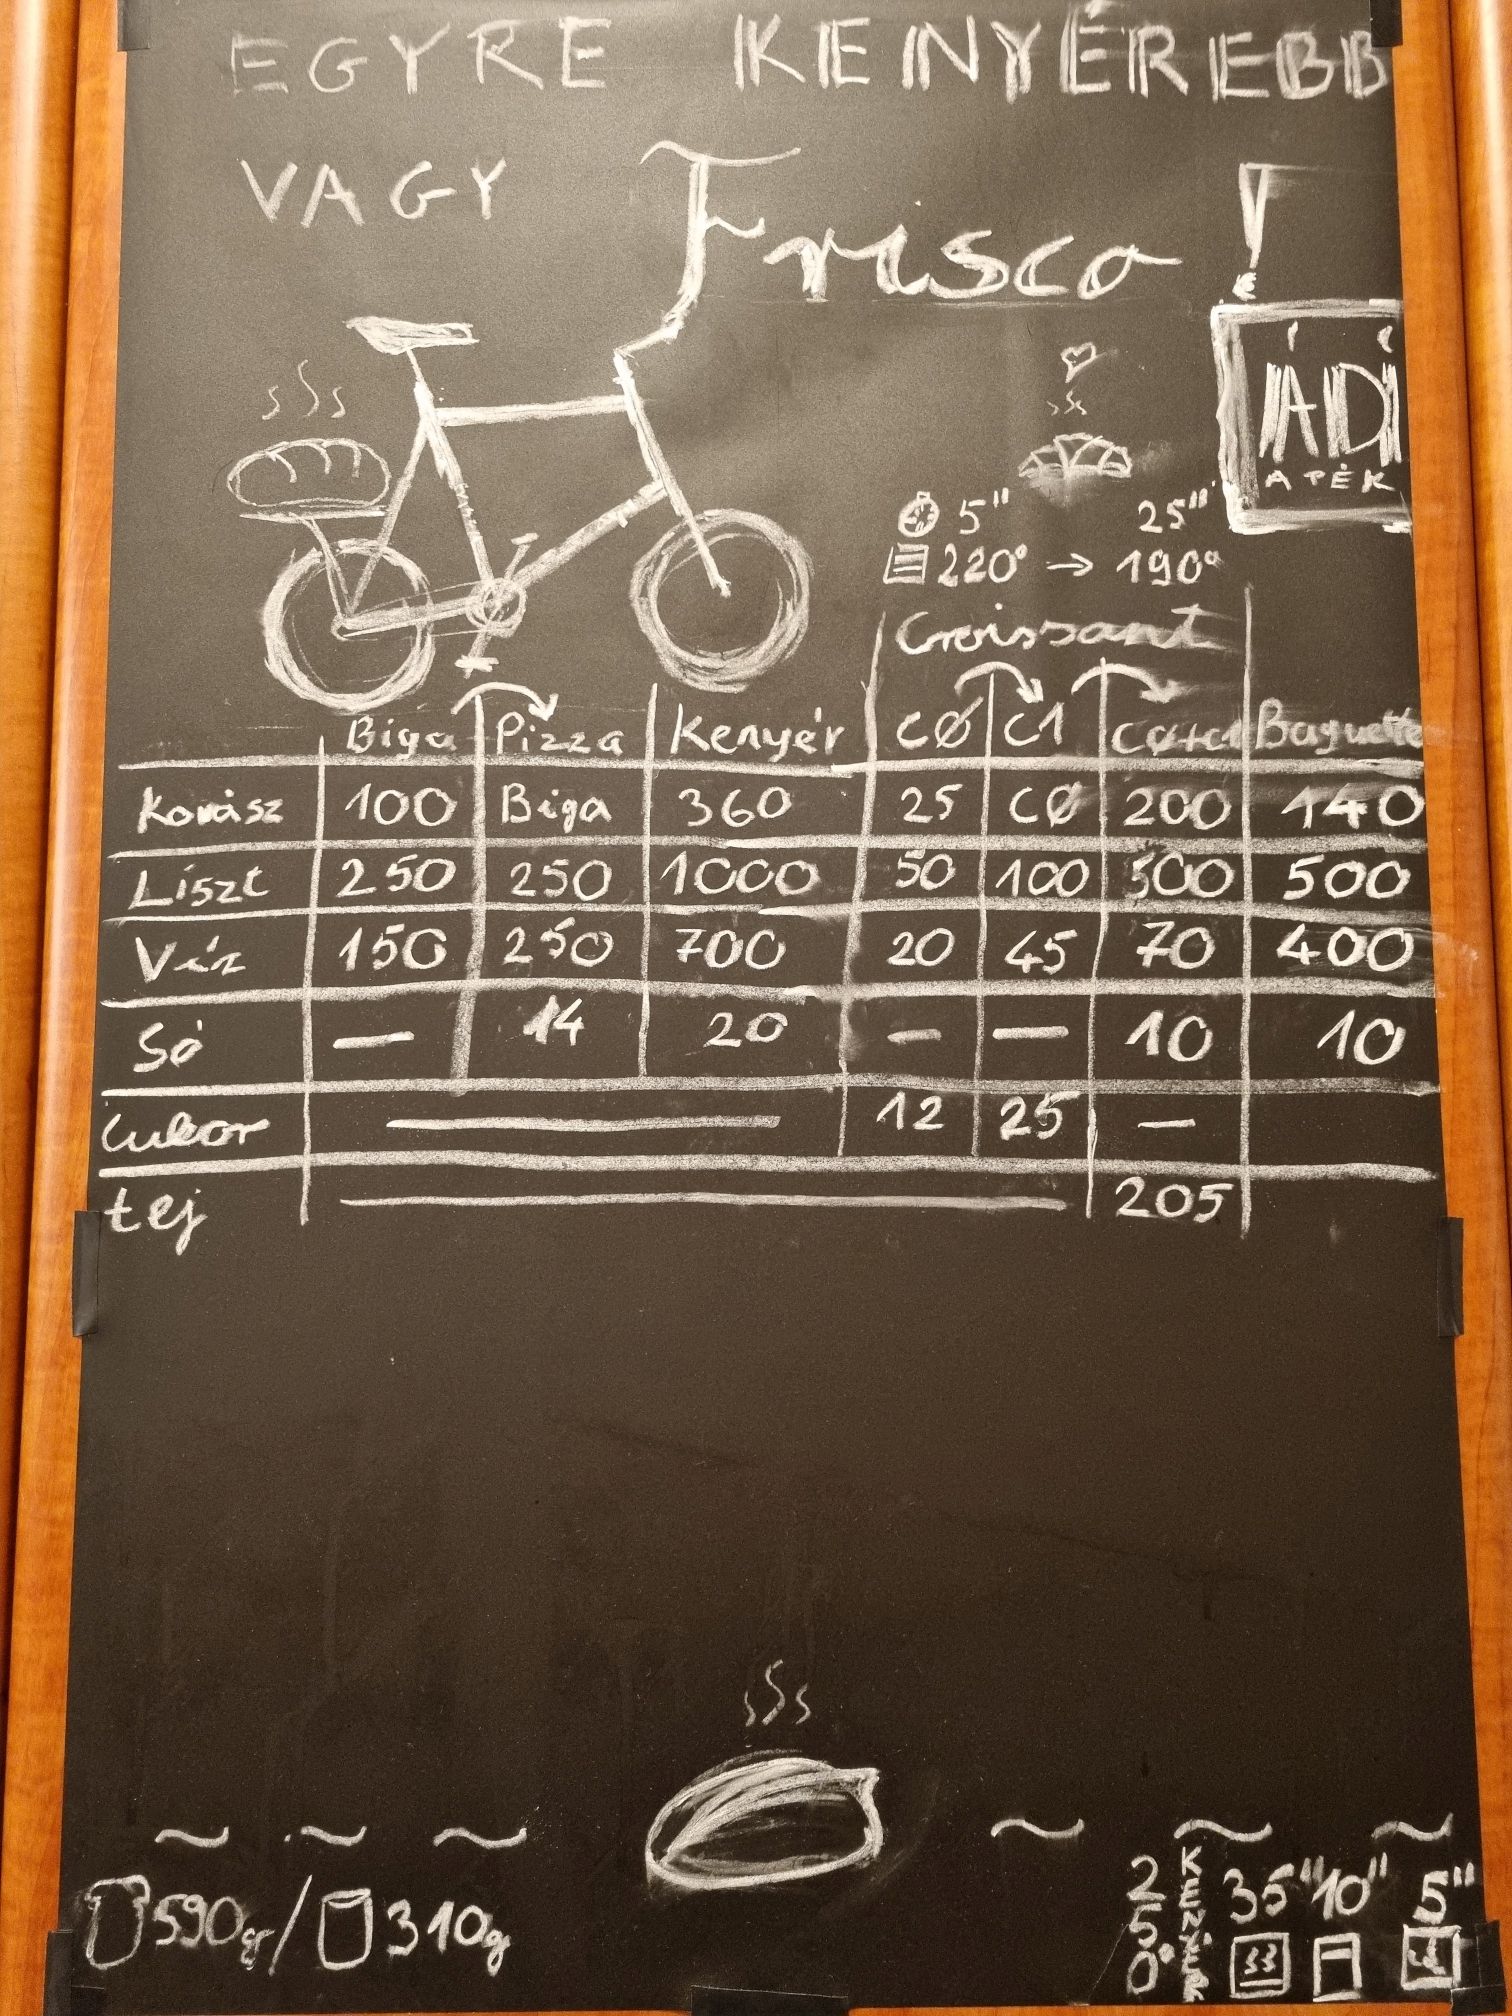 EGYRE KENYÉREBB
VAGY Frisco !
ÁDÍ
A PÉK
5" 25"
220° → 190°
Croissant
Biga Pizza Kenyér CØ C1 CØ+C1 Baguette
Kovász 100 Biga 360 25 CØ 200 140
Liszt 250 250 1000 50 100 500 500
Víz 150 250 700 20 45 70 400
Só — 14 20 — — 10 10
Cukor — 12 25 —
tej — 205
590gr / 310g
250° KENYÉR 35" 10" 5"